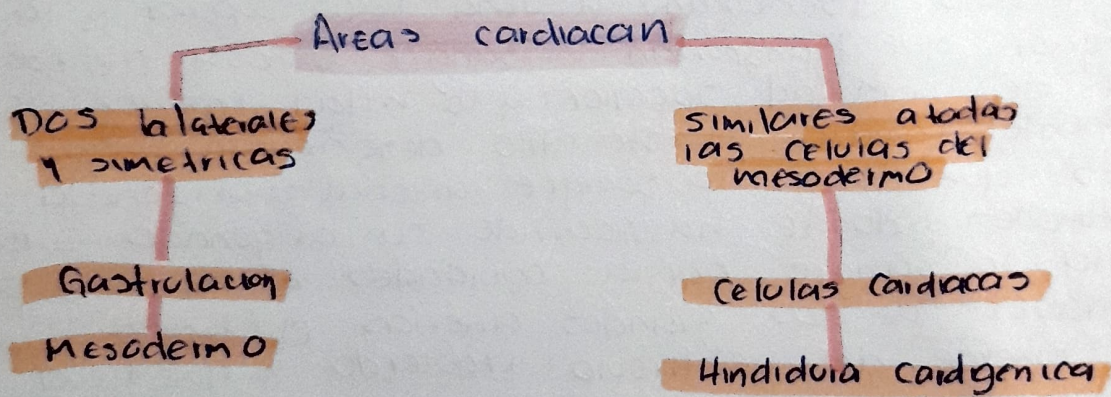 Areas cardiacan
Dos bilaterales
y simetricas
Gastrulacion
Mesodermo
similares a todas
las celulas del
mesodermo
Celulas cardiacas
Hindidura cardigenica